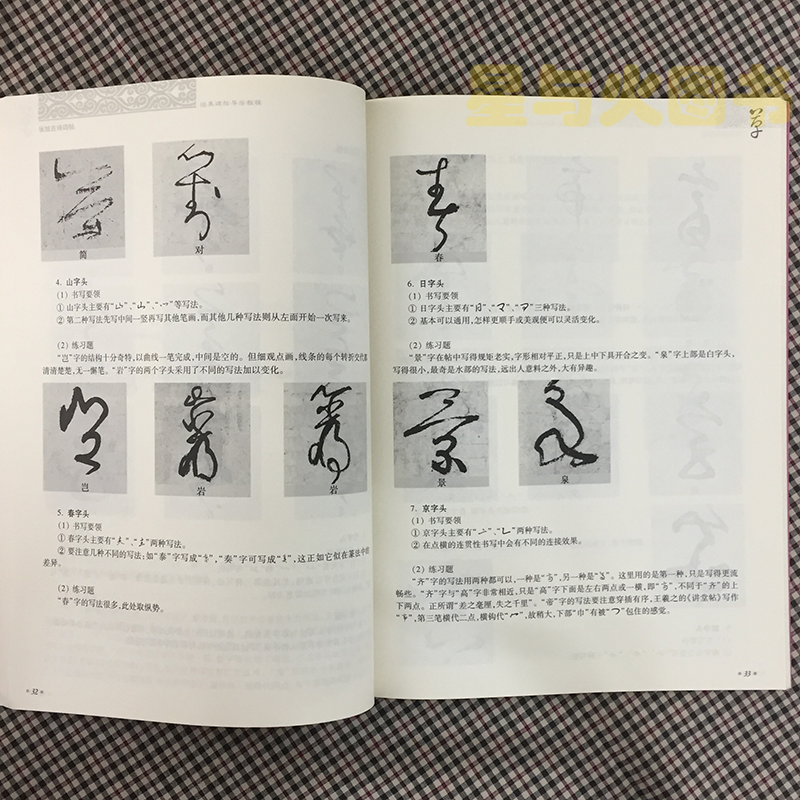 星与火图书
草
简
对
4. 山字头
(1) 书写要领
① 山字头主要有“”、“”、“”等写法。
② 第二种写法先写中间一竖再写其他笔画,而其他几种写法则从左面开始一次写来。
(2) 练习题
“岂”字的结构十分奇特,以曲线一笔完成,中间是空的。但细观点画,线条的每个转折交代都
清清楚楚,无一懈笔。“岩”字的两个字头采用了不同的写法加以变化。
岂
岩
岩
5. 春字头
(1) 书写要领
① 春字头主要有“”、“”两种写法。
② 要注意几种不同的写法;如“泰”字写成“”,“奏”字可写成“”,这正如它似在篆法中的
差异。
(2) 练习题
“春”字的写法很多,此处取纵势。
*32*
春
6. 日字头
(1) 书写要领
① 日字头主要有“”、“”、“”三种写法。
② 基本可以通用,怎样更顺手或美观便可以灵活变化。
(2) 练习题
“景”字在帖中写得规矩老实,字形相对平正,只是上中下具开合之变。“泉”字上部是白字头,
写得很小,最奇是水部的写法,远出人意料之外,大有异趣。
景
泉
7. 京字头
(1) 书写要领
① 京字头主要有“”、“”两种写法。
② 在点横的连贯性书写中会有不同的连接效果。
(2) 练习题
“齐”字的写法用两种都可以,一种是“”,另一种是“”。这里用的是第一种,只是写得更流
畅些。“齐”字与“高”字非常相近,只是“高”字下面是左右两点或一横,即“”,不同于“齐”的上
下两点。正所谓“差之毫厘,失之千里”。“帝”字的写法要注意穿插有序,王羲之的《讲堂帖》写作
“”,第三笔横代二点,横钩代“”,故稍大,下部“巾”有被“”包住的感觉。
*33*